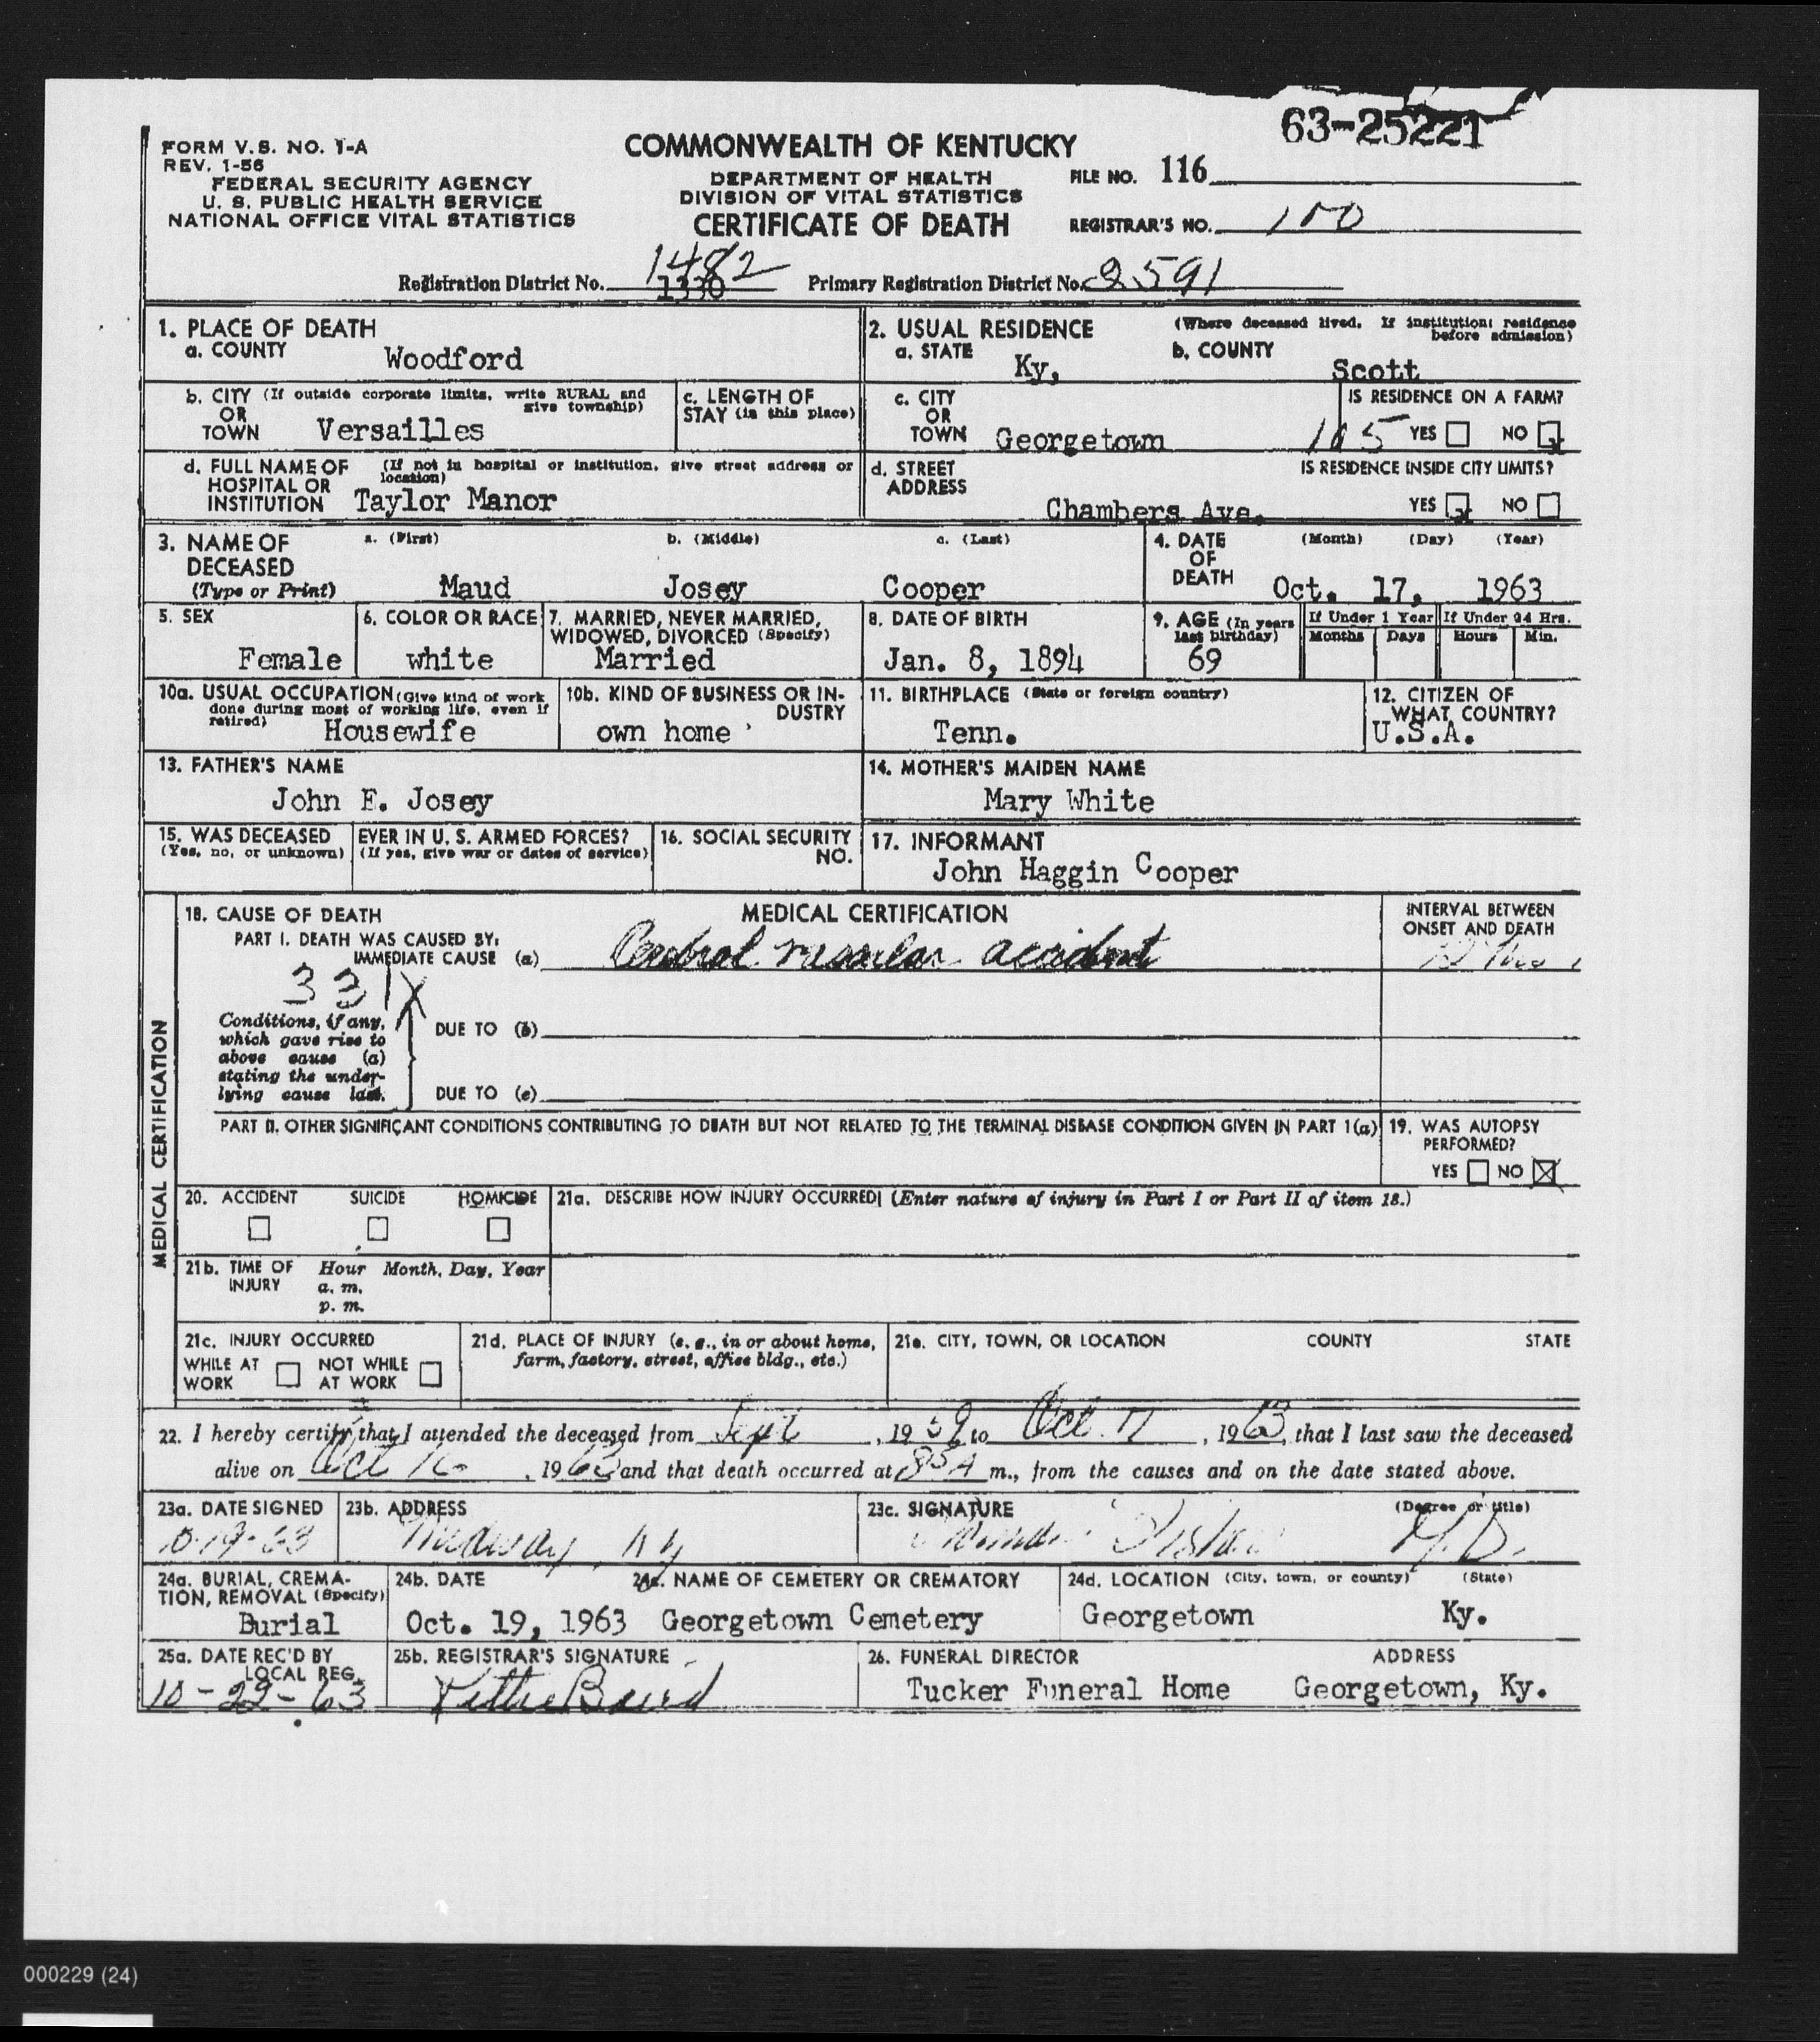 63-25221
FORM V. S. NO. 1-A
REV. 1-56
FEDERAL SECURITY AGENCY
U. S. PUBLIC HEALTH SERVICE
NATIONAL OFFICE VITAL STATISTICS
COMMONWEALTH OF KENTUCKY
DEPARTMENT OF HEALTH
DIVISION OF VITAL STATISTICS
CERTIFICATE OF DEATH
FILE NO. 116
REGISTRAR'S NO. 100
Registration District No. 1482 1330 Primary Registration District No. 2591
1. PLACE OF DEATH
a. COUNTY Woodford
2. USUAL RESIDENCE (Where deceased lived. If institution: residence before admission)
a. STATE Ky, b. COUNTY Scott
b. CITY (If outside corporate limits, write RURAL and give township)
OR
TOWN Versailles
c. LENGTH OF
STAY (in this place)
c. CITY
OR
TOWN Georgetown
105
IS RESIDENCE ON A FARM?
YES NO
d. FULL NAME OF (If not in hospital or institution, give street address or location)
HOSPITAL OR
INSTITUTION Taylor Manor
d. STREET
ADDRESS Chambers Ave.
IS RESIDENCE INSIDE CITY LIMITS?
YES NO
3. NAME OF
DECEASED
(Type or Print)
a. (First) b. (Middle) c. (Last)
Maud Josey Cooper
4. DATE
OF
DEATH
(Month) (Day) (Year)
Oct. 17, 1963
5. SEX
Female
6. COLOR OR RACE
white
7. MARRIED, NEVER MARRIED,
WIDOWED, DIVORCED (Specify)
Married
8. DATE OF BIRTH
Jan. 8, 1894
9. AGE (In years
last birthday)
69
If Under 1 Year If Under 24 Hrs.
Months Days Hours Min.
10a. USUAL OCCUPATION (Give kind of work
done during most of working life, even if
retired) Housewife
10b. KIND OF BUSINESS OR IN-
DUSTRY
own home
11. BIRTHPLACE (State or foreign country)
Tenn.
12. CITIZEN OF
WHAT COUNTRY?
U.S.A.
13. FATHER'S NAME
John E. Josey
14. MOTHER'S MAIDEN NAME
Mary White
15. WAS DECEASED EVER IN U. S. ARMED FORCES?
(Yes, no, or unknown) (If yes, give war or dates of service)
16. SOCIAL SECURITY
NO.
17. INFORMANT
John Haggin Cooper
MEDICAL CERTIFICATION
18. CAUSE OF DEATH
MEDICAL CERTIFICATION
INTERVAL BETWEEN
ONSET AND DEATH
PART I. DEATH WAS CAUSED BY:
IMMEDIATE CAUSE (a) Cerebral vascular accident
331X
Conditions, if any,
which gave rise to
above cause (a)
stating the under-
lying cause last.
DUE TO (b)
DUE TO (c)
PART II. OTHER SIGNIFICANT CONDITIONS CONTRIBUTING TO DEATH BUT NOT RELATED TO THE TERMINAL DISEASE CONDITION GIVEN IN PART 1(a)
19. WAS AUTOPSY
PERFORMED?
YES NO
20. ACCIDENT SUICIDE HOMICIDE
21a. DESCRIBE HOW INJURY OCCURRED (Enter nature of injury in Part I or Part II of item 18.)
21b. TIME OF
INJURY
Hour Month, Day, Year
a. m.
p. m.
21c. INJURY OCCURRED
WHILE AT
WORK
NOT WHILE
AT WORK
21d. PLACE OF INJURY (e. g., in or about home,
farm, factory, street, office bldg., etc.)
21e. CITY, TOWN, OR LOCATION COUNTY STATE
22. I hereby certify that I attended the deceased from Sept, 1959 to Oct. 17, 1963, that I last saw the deceased
alive on Oct 16, 1963 and that death occurred at 85A m., from the causes and on the date stated above.
23a. DATE SIGNED
10-19-63
23b. ADDRESS
Midway, Ky
23c. SIGNATURE (Degree or title)
M.D.
24a. BURIAL, CREMA-
TION, REMOVAL (Specify)
Burial
24b. DATE
Oct. 19, 1963
24c. NAME OF CEMETERY OR CREMATORY
Georgetown Cemetery
24d. LOCATION (City, town, or county) (State)
Georgetown Ky.
25a. DATE REC'D BY
LOCAL REG.
10-22-63
25b. REGISTRAR'S SIGNATURE
26. FUNERAL DIRECTOR ADDRESS
Tucker Funeral Home Georgetown, Ky.
000229 (24)